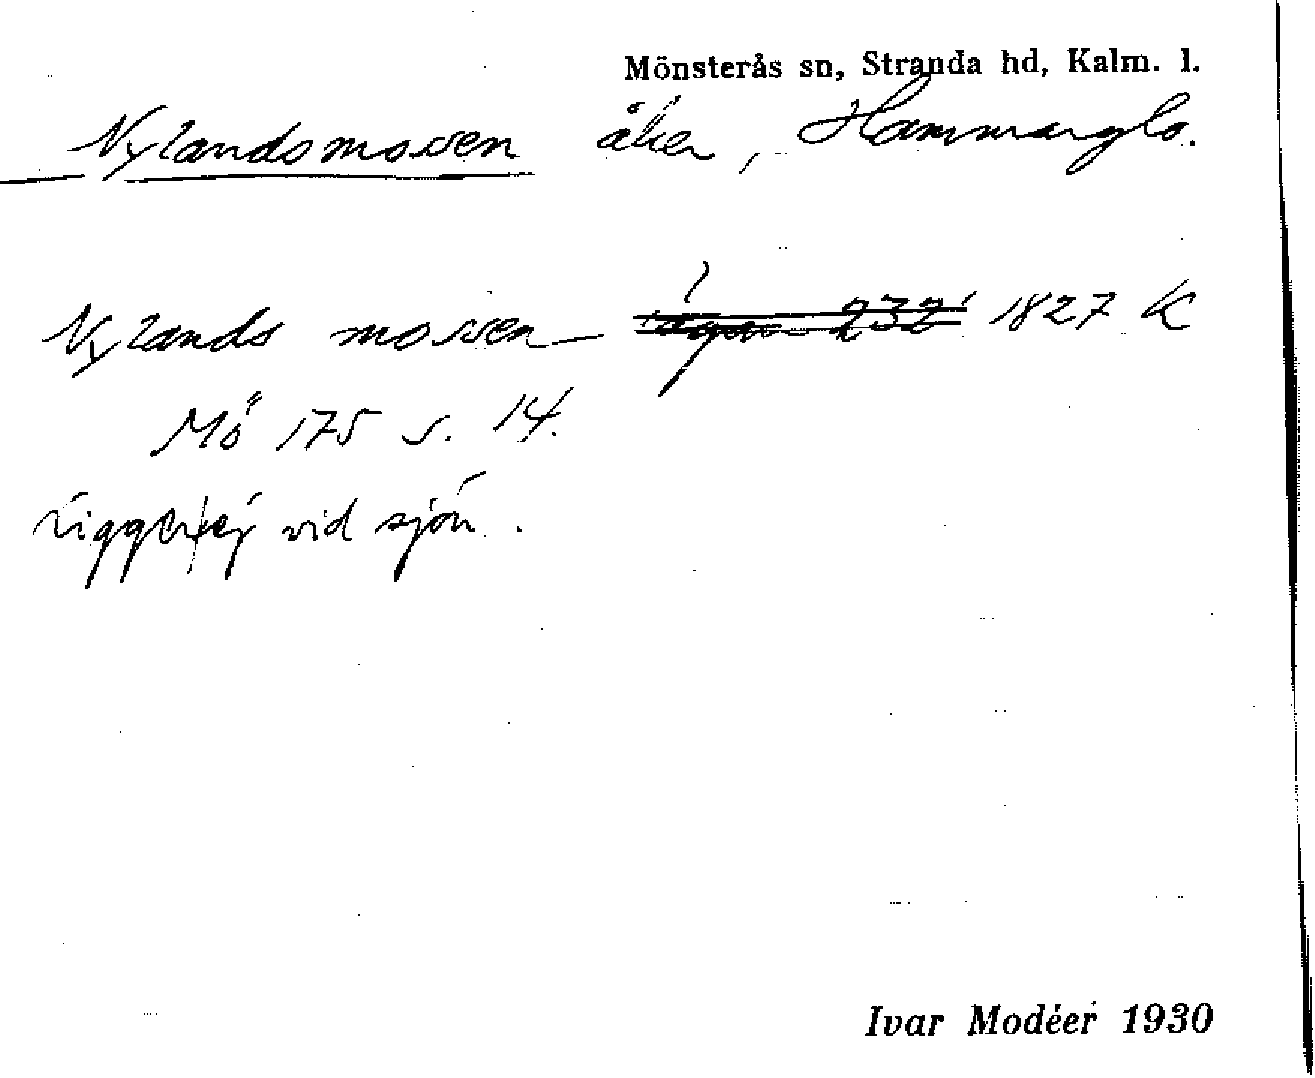 Mönsterås sn, Stranda hd, Kalm. l.
Nylandsmossen åker, Hammarglo.
Nylands mossen 1827 K
Mö 175 s. 14.
Ligger ej vid sjön.
Ivar Modéer 1930